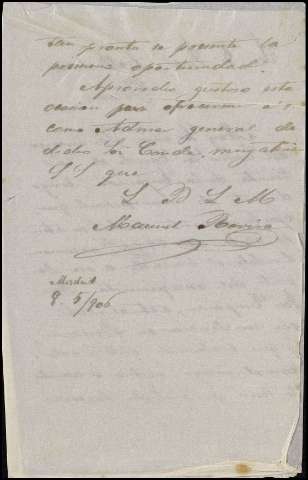 tan pronto se presente la
primera oportunidad.
Aprovecho gustoso esta
ocasion para ofrecerme a V.
como Admor general de
dicho Sr Conde, muy atto
S S que
L B L M
Manuel Rovira
Madrid
9. 5/906